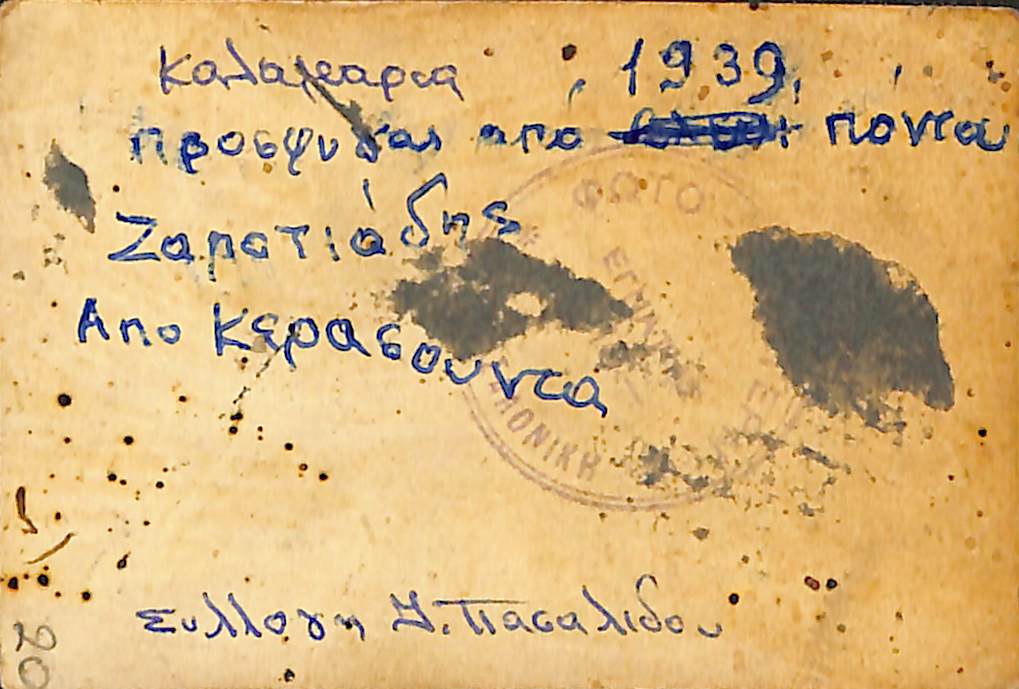 Καλαμαρια, 1939.
προσφυγας από ποντου
Ζαπατιάδης
Απο Κερασουντα
ΦΩΤΟ
ΟΝΙΚΗ
Συλλογη Πασαλιδου
20